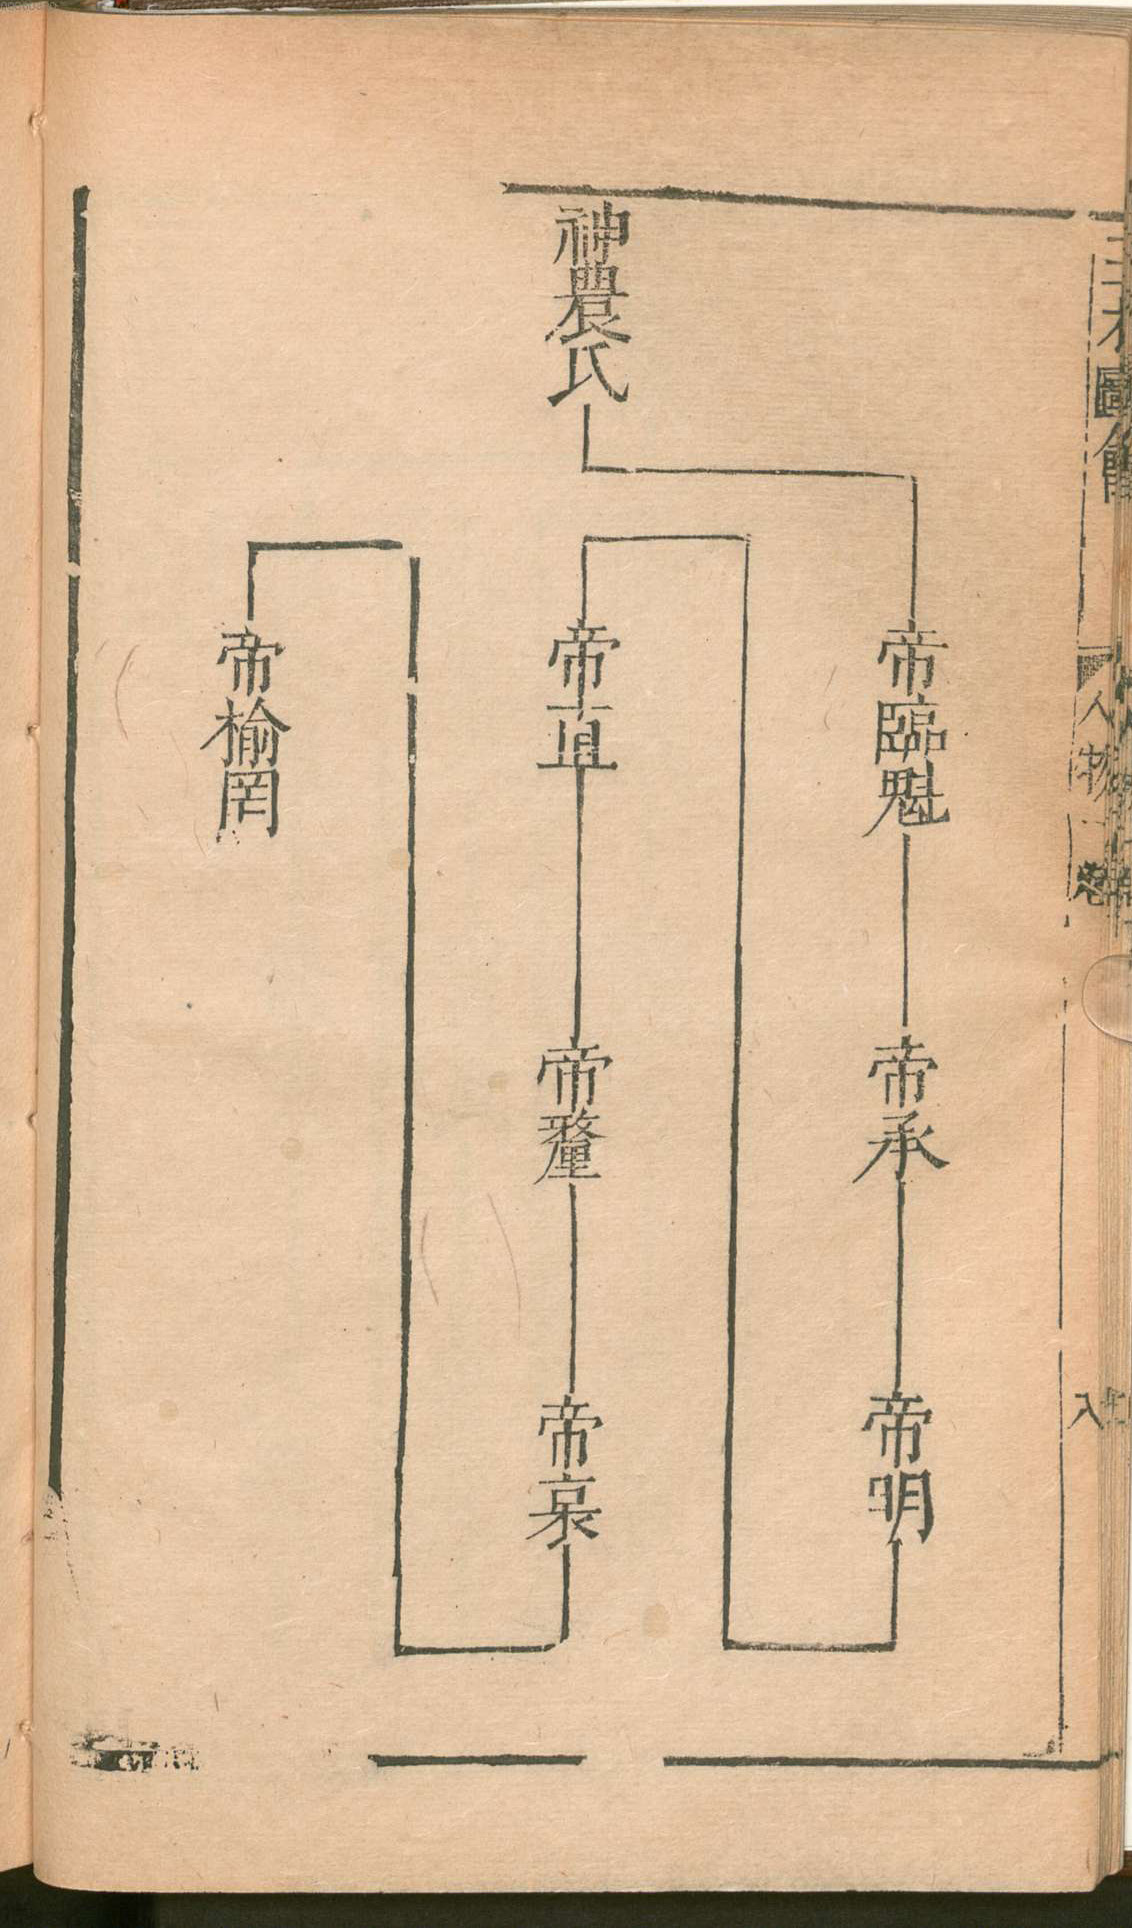 神農氏
帝臨魁
帝承
帝明
帝直
帝釐
帝哀
帝榆罔
人物一卷
八